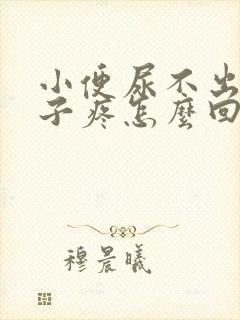 小便尿不出
子疼怎麼回
穆晨曦